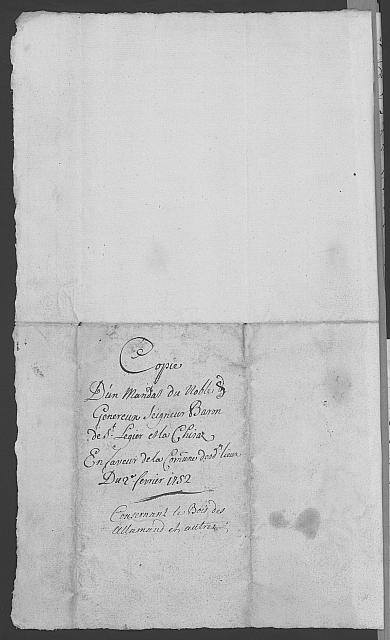 Copie
D'un Mandat du Noble &
Genereux Seigneur Baron
de St Legier et la Chiesaz
En faveur de la Comune desd. lieux
Du 2e fevrier 1752
Consernant le Bois des
Allamand et autres